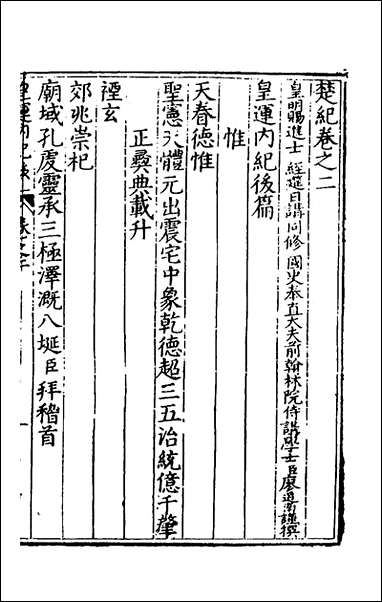 楚紀卷之二
皇明賜進士 經筵日講同修 國史奉直大夫前翰林院侍講學士臣廖道南謹撰
皇運内紀後篇
惟
天春德惟
聖憲天體元出震宅中象乾德超三五治統億千肇
正彞典載升
禋玄
郊兆崇祀
廟域孔虔靈承三極澤溉八埏臣拜稽首